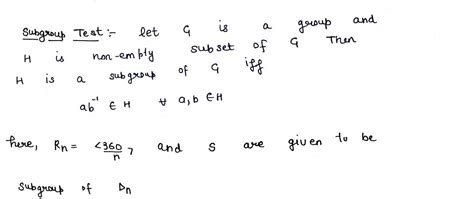 Subgroup Test :- let G is a group and
H is non-empty subset of G Then
H is a subgroup of G iff
ab⁻¹ ∈ H ∀ a,b ∈ H
here, Rn = <360/n> and S are given to be
subgroup of Dn